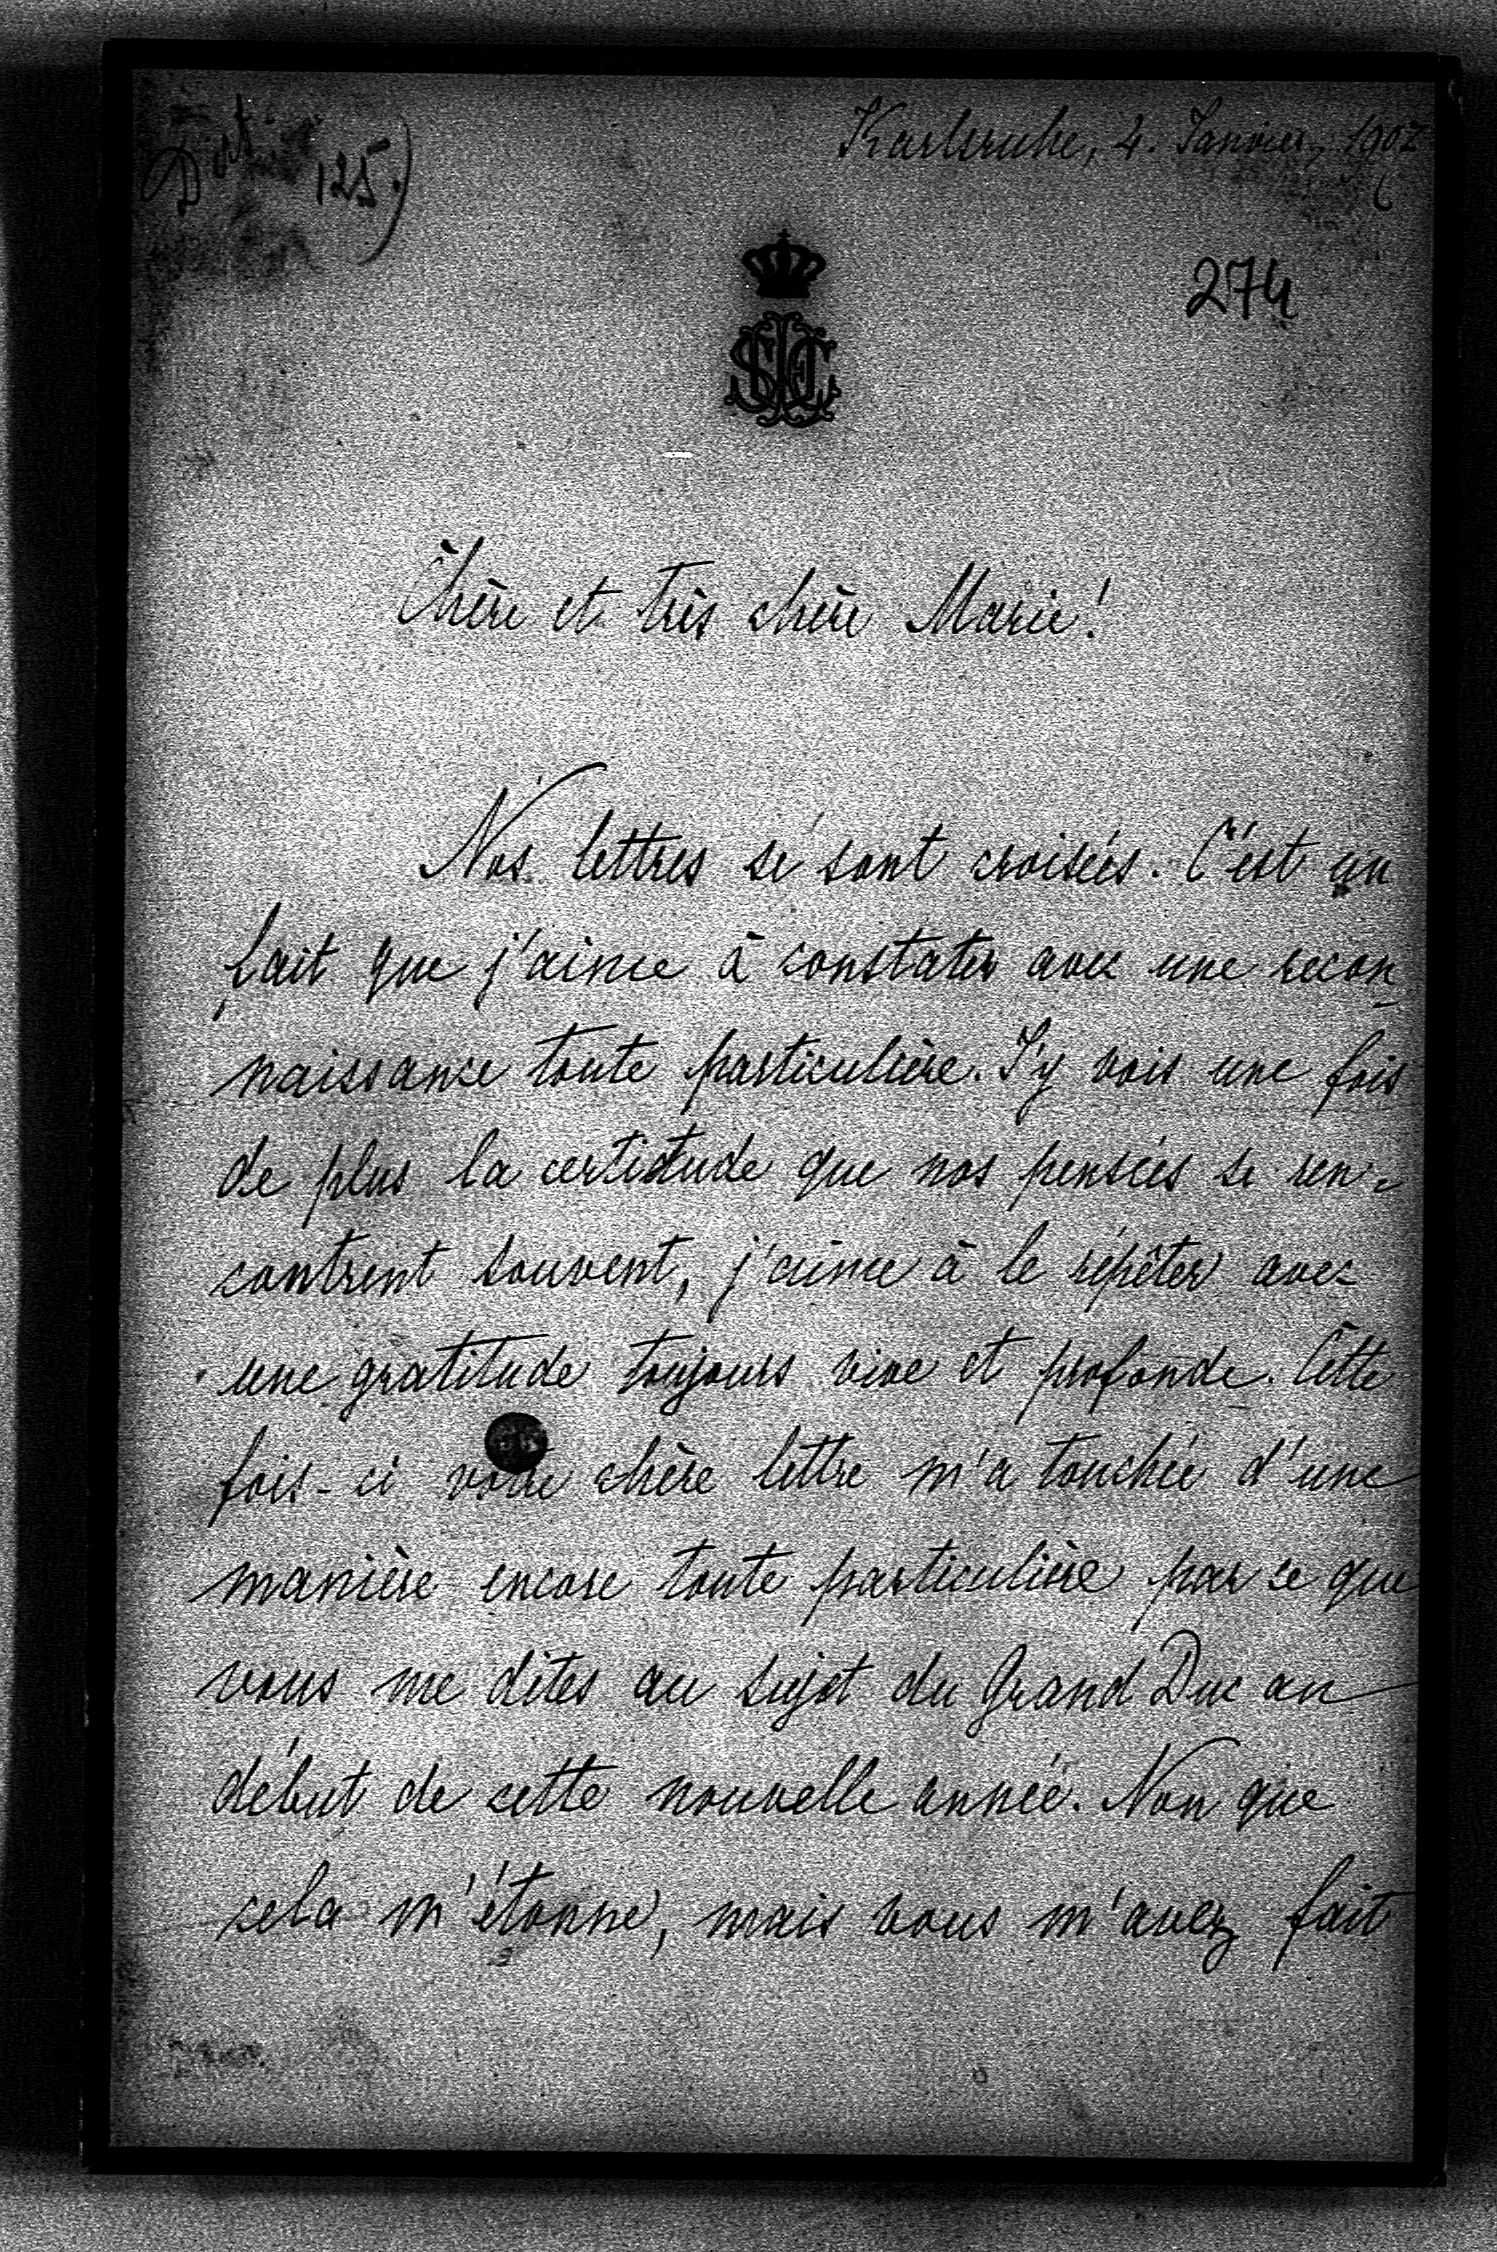 Karlsruhe, 4. Janvier, 1907
125.)
274
Chère et très chère Marie!
Nos lettres se sont croisées. C'est un
fait que j'aime à constater avec une recon-
naissance toute particulière. J'y vois une fois
de plus la certitude que nos pensées se ren-
contrent souvent, j'aime à le répêter avec
une gratitude toujours vive et profonde. Cette
fois-ci votre chère lettre m'a touchée d'une
manière encore toute particulière par ce que
vous me dites au sujet du Grand Duc au
début de cette nouvelle année. Non que
cela m'étonne, mais vous m'avez fait